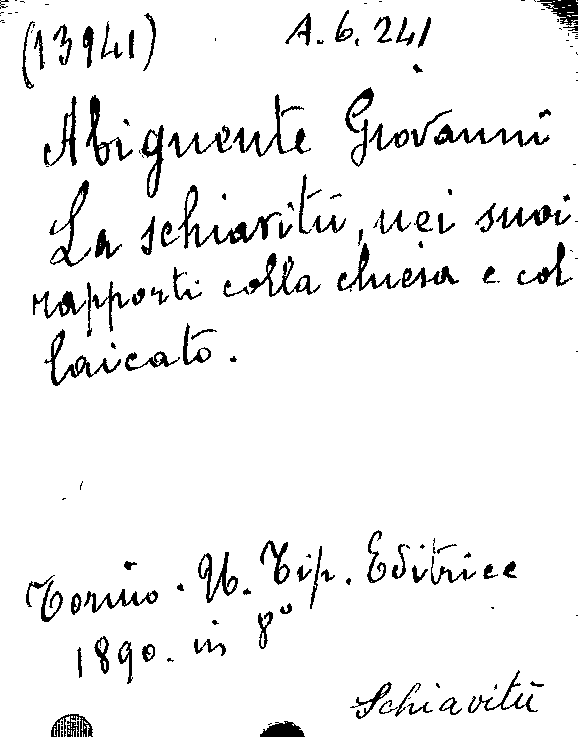 (13941) A. 6. 241
Abignente Giovanni
La schiavitù, nei suoi
rapporti colla chiesa e col
laicato.
Torino. U. Tip. Editrice
1890. in 8°
Schiavitù